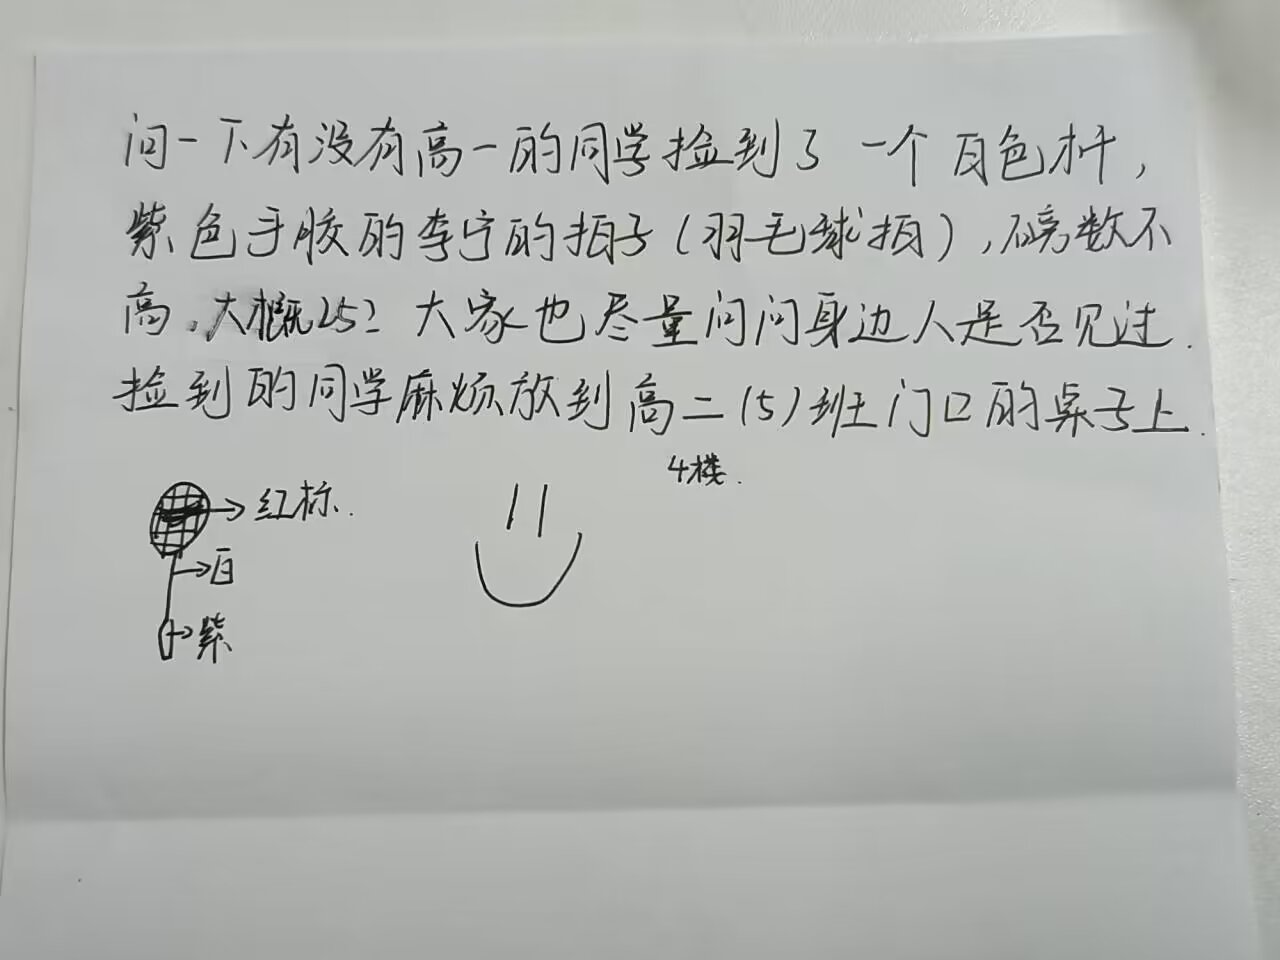 问一下有没有高一的同学捡到了一个白色杆,
紫色手胶的李宁的拍子(羽毛球拍),磅数不
高,大概25? 大家也尽量问问身边人是否见过.
捡到的同学麻烦放到高二(5)班门口的桌子上.
4楼.
红标.
白
紫